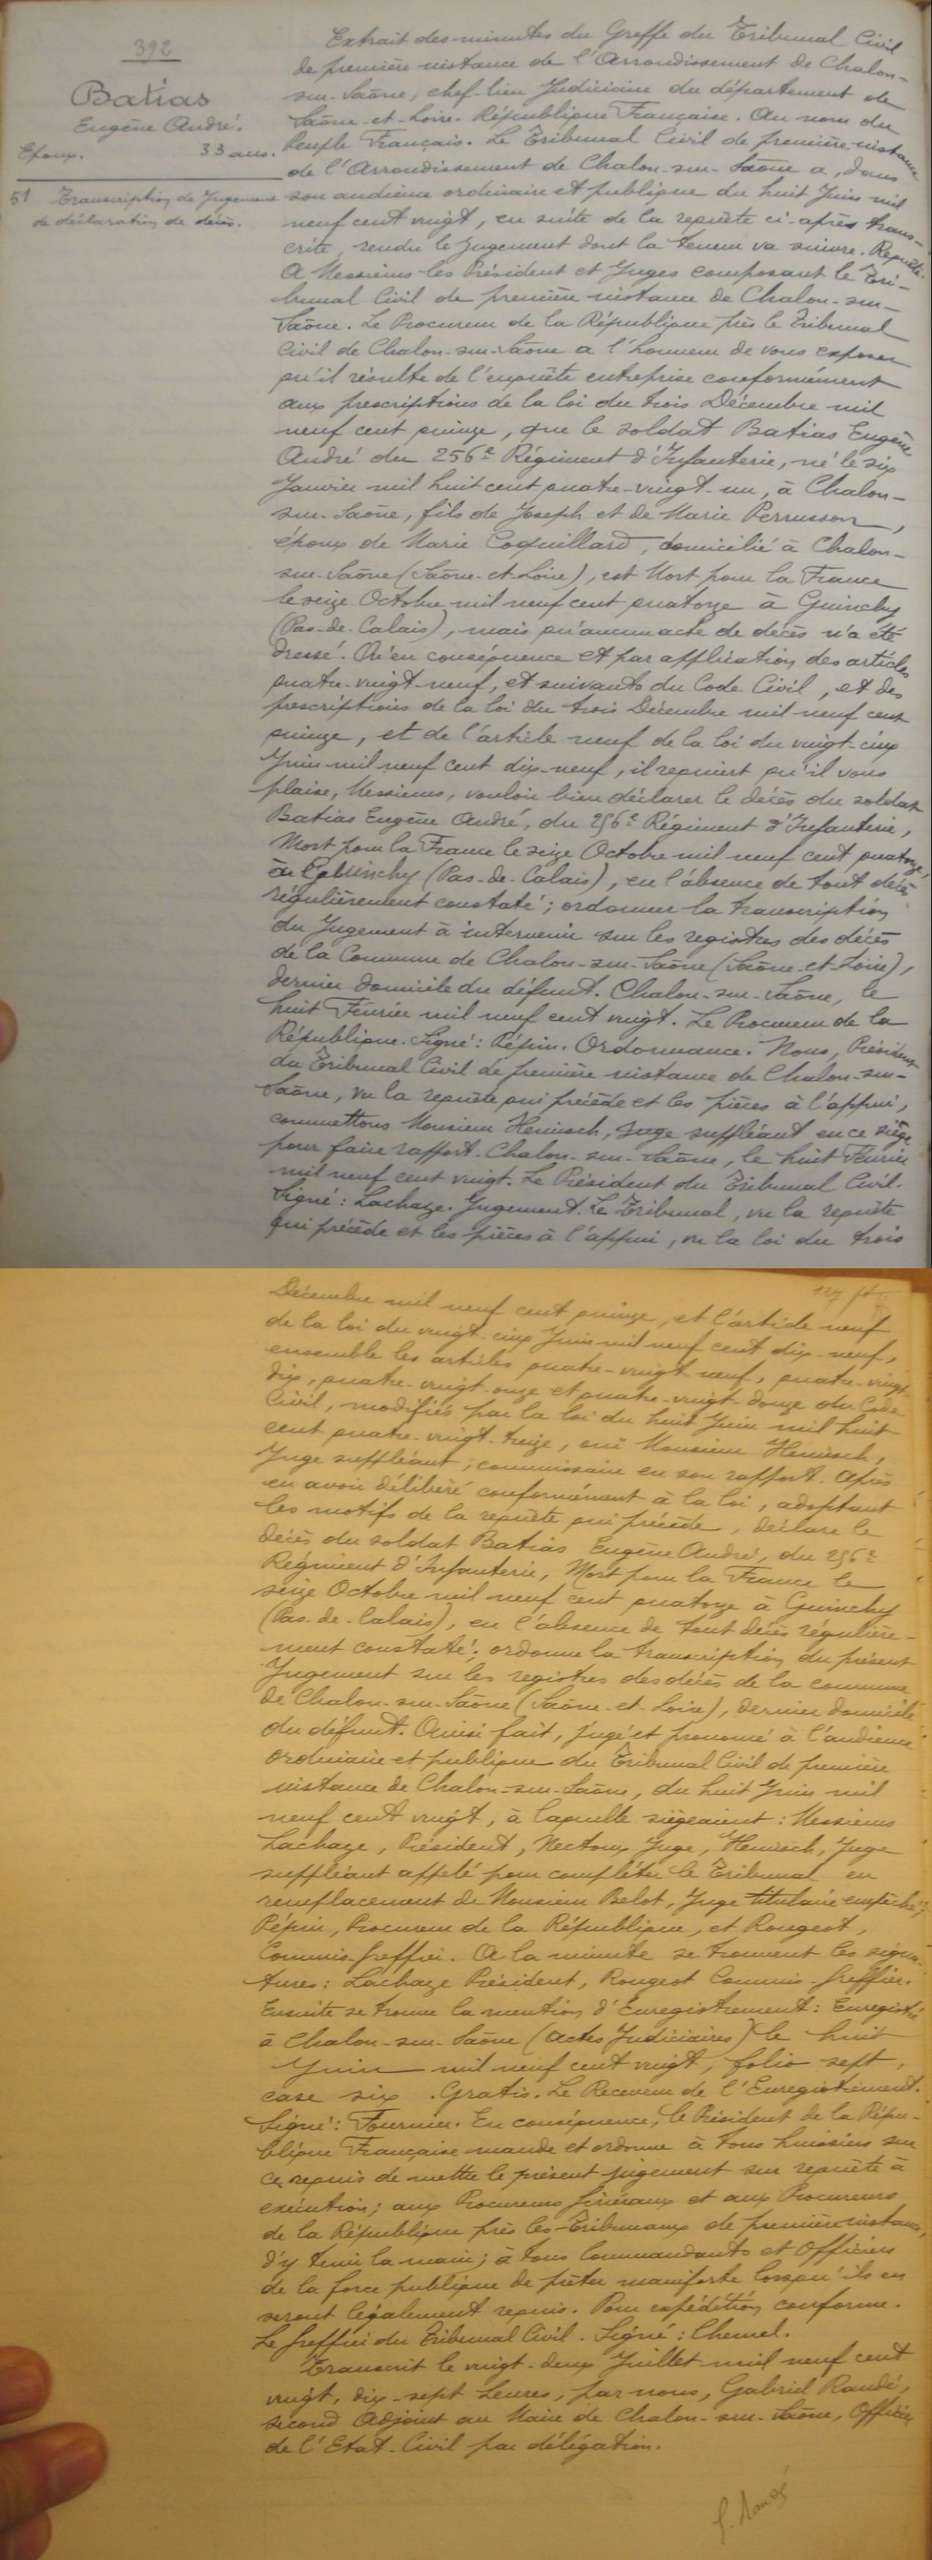 392
Batias
Eugène André.
Epoux. 33 ans.
51 Transcription de Jugement
de déclaration de décès.
Extrait des minutes du Greffe du Tribunal Civil
de première instance de l'Arrondissement de Chalon-
sur-Saône, chef-lieu Judiciaire du département de
Saône-et-Loire. République Française. Au nom du
Peuple Français. Le Tribunal Civil de première instance
de l'Arrondissement de Chalon-sur-Saône a, dans
son audience ordinaire et publique du huit Juin mil
neuf cent vingt, en suite de la requête ci-après trans-
crite, rendu le Jugement dont la teneur va suivre. Requête.
A Messieurs les Président et Juges composant le Tri-
bunal Civil de première instance de Chalon-sur-
Saône. Le Procureur de la République près le Tribunal
Civil de Chalon-sur-Saône a l'honneur de vous exposer
qu'il résulte de l'enquête entreprise conformément
aux prescriptions de la loi du trois Décembre mil
neuf cent quinze, que le soldat Batias Eugène
André du 256e Régiment d'Infanterie, né le six
Janvier mil huit cent quatre-vingt-un, à Chalon-
sur-Saône, fils de Joseph et de Marie Perrusson,
époux de Marie Coquillard, domicilié à Chalon-
sur-Saône (Saône-et-Loire), est Mort pour la France
le seize Octobre mil neuf cent quatorze à Guinchy
(Pas-de-Calais), mais qu'aucun acte de décès n'a été
dressé. Qu'en conséquence et par application des articles
quatre-vingt-neuf, et suivants du Code Civil, et des
prescriptions de la loi du trois Décembre mil neuf cent
quinze, et de l'article neuf de la loi du vingt-cinq
Juin mil neuf cent dix-neuf, il requiert qu'il vous
plaise, Messieurs, vouloir bien déclarer le décès du soldat
Batias Eugène André, du 256e Régiment d'Infanterie,
Mort pour la France le seize Octobre mil neuf cent quatorze,
à Guinchy (Pas-de-Calais), en l'absence de tout décès
régulièrement constaté; ordonner la transcription
du Jugement à intervenir sur les registres des décès
de la Commune de Chalon-sur-Saône (Saône-et-Loire),
dernier domicile du défunt. Chalon-sur-Saône, le
huit Février mil neuf cent vingt. Le Procureur de la
République. Signé: Pépin. Ordonnance. Nous, Président
du Tribunal Civil de première instance de Chalon-sur-
Saône, vu la requête qui précède et les pièces à l'appui,
commettons Monsieur Henisch, Juge suppléant en ce siège
pour faire rapport. Chalon-sur-Saône, le huit Février
mil neuf cent vingt. Le Président du Tribunal Civil.
Signé: Lachaze. Jugement. Le Tribunal, vu la requête
qui précède et les pièces à l'appui, vu la loi du trois
Décembre mil neuf cent quinze, et l'article neuf
de la loi du vingt-cinq Juin mil neuf cent dix-neuf,
ensemble les articles quatre-vingt neuf, quatre-vingt
dix, quatre-vingt-onze et quatre-vingt-douze du Code
Civil, modifiés par la loi du huit Juin mil huit
cent quatre-vingt-treize, ouï Monsieur Henisch,
Juge suppléant, commissaire en son rapport. Après
en avoir délibéré conformément à la loi, adoptant
les motifs de la requête qui précède, déclare le
décès du soldat Batias Eugène André, du 256e
Régiment d'Infanterie, Mort pour la France le
seize Octobre mil neuf cent quatorze à Guinchy
(Pas-de-Calais), en l'absence de tout décès régulière-
ment constaté; ordonne la transcription du présent
Jugement sur les registres des décès de la commune
de Chalon-sur-Saône (Saône-et-Loire), dernier domicile
du défunt. Ainsi fait, jugé et prononcé à l'audience
ordinaire et publique du Tribunal Civil de première
instance de Chalon-sur-Saône, du huit Juin mil
neuf cent vingt, à laquelle siégeaient: Messieurs
Lachaze, Président, Nectoux Juge, Henisch, Juge
suppléant appelé pour compléter le Tribunal en
remplacement de Monsieur Belot, Juge titulaire empêché,
Pépin, Procureur de la République, et Rougeot,
Commis-Greffier. A la minute se trouvent les signa-
tures: Lachaze Président, Rougeot Commis-Greffier.
Ensuite se trouve la mention d'Enregistrement: Enregistré
à Chalon-sur-Saône (Actes Judiciaires) le huit
Juin mil neuf cent vingt, folio sept,
case six. Gratis. Le Receveur de l'Enregistrement.
Signé: Fournier. En conséquence, le Président de la Répu-
blique Française mande et ordonne à tous huissiers sur
ce requis de mettre le présent jugement sur requête à
exécution; aux Procureurs Généraux et aux Procureurs
de la République près les Tribunaux de première instance,
d'y tenir la main; à tous Commandants et Officiers
de la force publique de prêter mainforte lorsqu'ils en
seront légalement requis. Pour expédition conforme.
Le Greffier du Tribunal Civil. Signé: Chemel.
Transcrit le vingt-deux Juillet mil neuf cent
vingt, dix-sept heures, par nous, Gabriel Randé,
second Adjoint au Maire de Chalon-sur-Saône, Officier
de l'Etat-Civil par délégation.
G. Randé